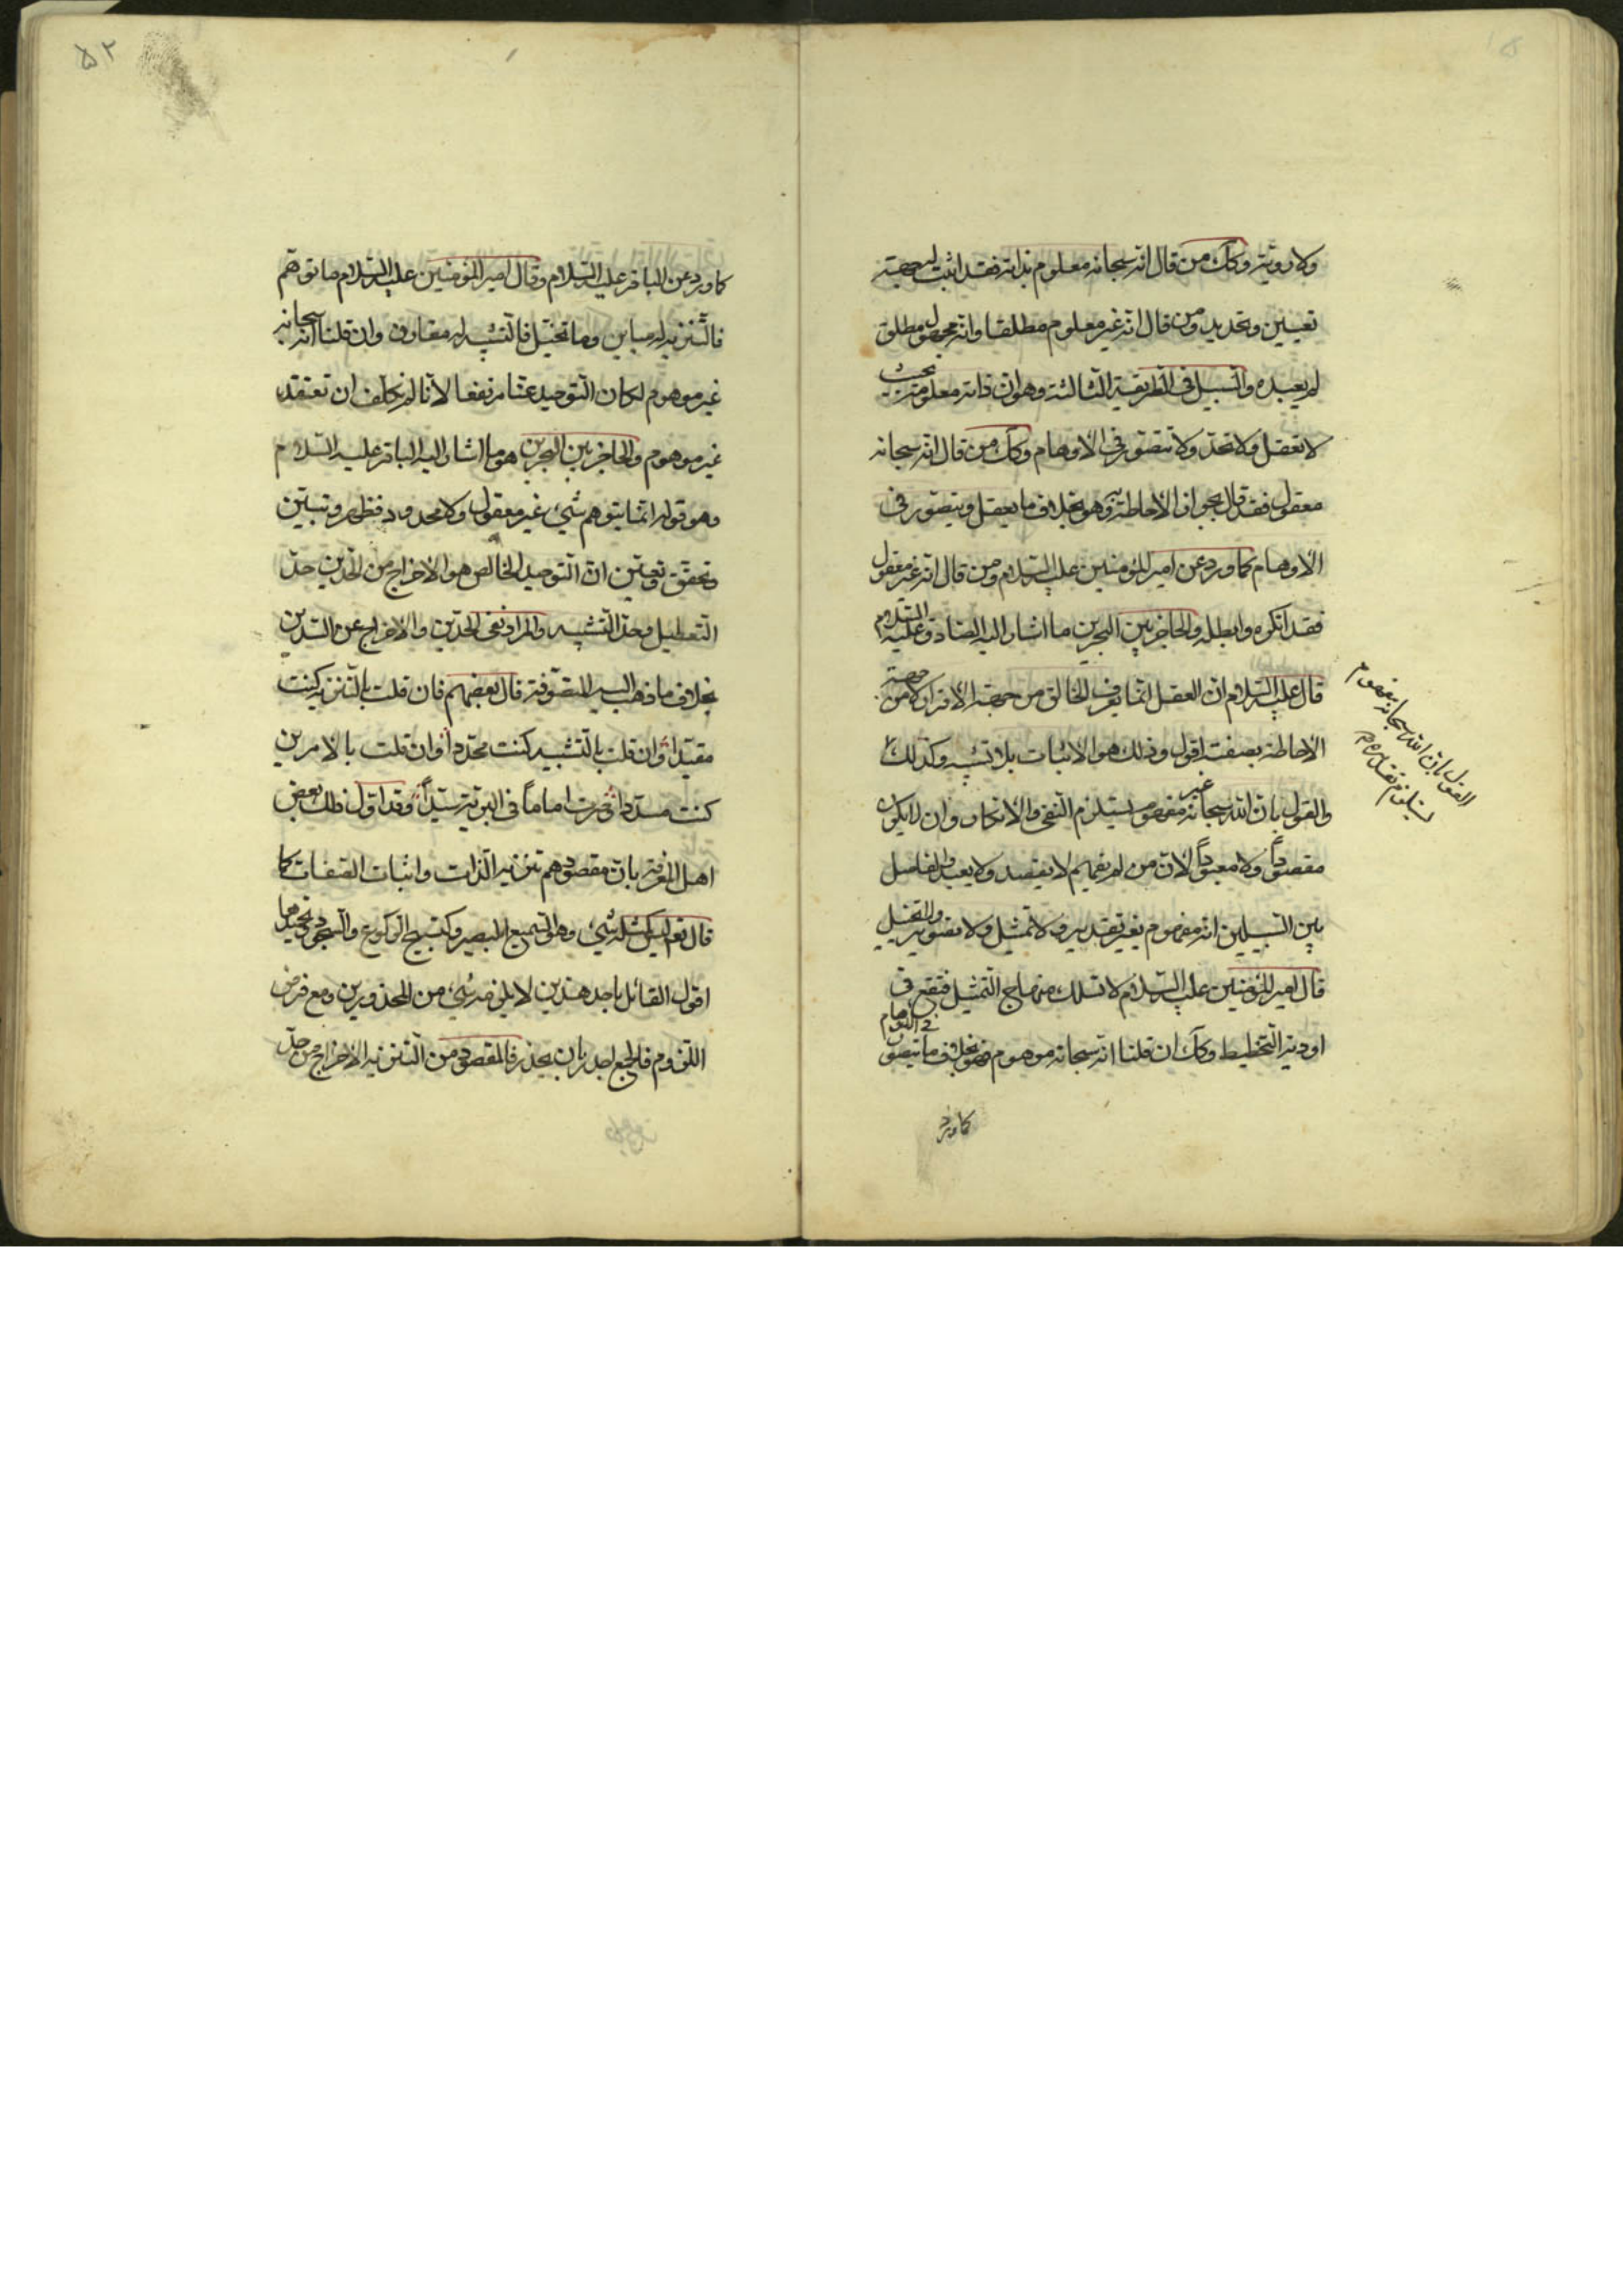 ولا روية وكك من قال انه سبحانه معلوم بذاته فقد اثبت له جهة
تعيين وتحديد ومن قال انه غير معلوم مطلقا وانه مجهول مطلق
لم يعبده والسبيل في الطريقة الثالثة وهو ان ذاته معلومة بحيث
لا تعقل ولا تحد ولا تتصور في الاوهام وكك من قال انه سبحانه
معقول فقد قال بجواز الاحاطة به وهو بخلاف ما يعقل ويتصور في
الاوهام كما ورد عن امير المؤمنين عليه السلام ومن قال انه غير معقول
فقد انكره وابطله والحاجز بين البحرين ما اشار اليه الصادق عليه السلام
قال عليه السلام ان العقل انما يعرف الخالق من جهة الاقرار لا من جهة
الاحاطة بصفته اقول وذلك هو الاثبات بلا تشبيه وكذلك
والقول بان الله سبحانه غير مفهوم يستلزم النفي والانكار وان لا يكون
مقصوداً ولا معبوداً لان من لم يفهم لا يقصد ولا يعبد والفاصل
بين السبيلين انه مفهوم بغير تقدير ولا تمثيل ولا تصوير والتخيل
قال امير المؤمنين عليه السلام لا تسلك منهاج التمثيل فتقع في
اودية التخطيط وكك ان قلنا انه سبحانه موهوم فهو بخلاف ما يتصور في الاوهام
كما ورد
القول بان الله سبحانه مفهوم
يستلزم تقديره م
۵۲
كما ورد عن الباقر عليه السلام وقال امير المؤمنين عليه السلام ما توهم
فالتنزيه له مباين وما تخيل فالتشبيه له مقارن وان قلنا انه سبحانه
غير موهوم لكان التوحيد عنا مرتفعا لانا لم نكلف ان نعتقد
غير موهوم والحاجز بين البحرين هو ما اشار اليه الباقر عليه السلام
وهو قوله انما يتوهم شيء غير معقول ولا محدود فظهر وتبين
وتحقق وتعين ان التوحيد الخالص هو الاخراج من الحدين حد
التعطيل وحد التشبيه والمراد نفي الحدين والاخراج عن السدين
بخلاف ما ذهب اليه المتصوفة قال بعضهم فان قلت بالتنزيه كنت
مقيدا وان قلت بالتشبيه كنت محددا وان قلت بالامرين
كنت مسددا وصرت اماماً في البرية سيداً وقد اول ذلك بعض
اهل المعرفة بان مقصودهم تنزيه الذات واثبات الصفات كما
قال تع ليس كمثله شيء وهو السميع البصير وكتسبيح الركوع والسجود وتحميدهما
اقول القائل باحد هذين لا يلزمه شيء من المحذورين ومع فرض
اللزوم فالجمع اجدر بان يحذر فالمقصود من التنزيه الاخراج من حد